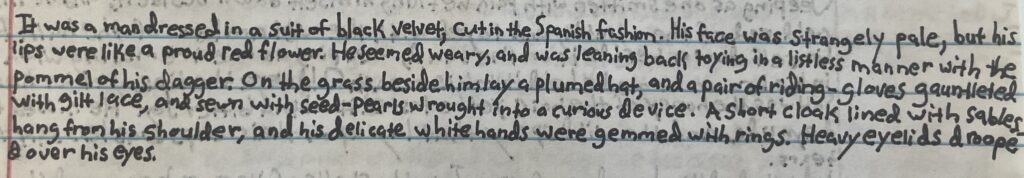 It was a man dressed in a suit of black velvet, cut in the Spanish fashion. His face was strangely pale, but his
lips were like a proud red flower. He seemed weary, and was leaning back toying in a listless manner with the
pommel of his dagger. On the grass beside him lay a plumed hat, and a pair of riding-gloves gauntleted
with gilt lace, and sewn with seed-pearls wrought into a curious device. A short cloak lined with sables
hang from his shoulder, and his delicate white hands were gemmed with rings. Heavy eyelids droope
d over his eyes.